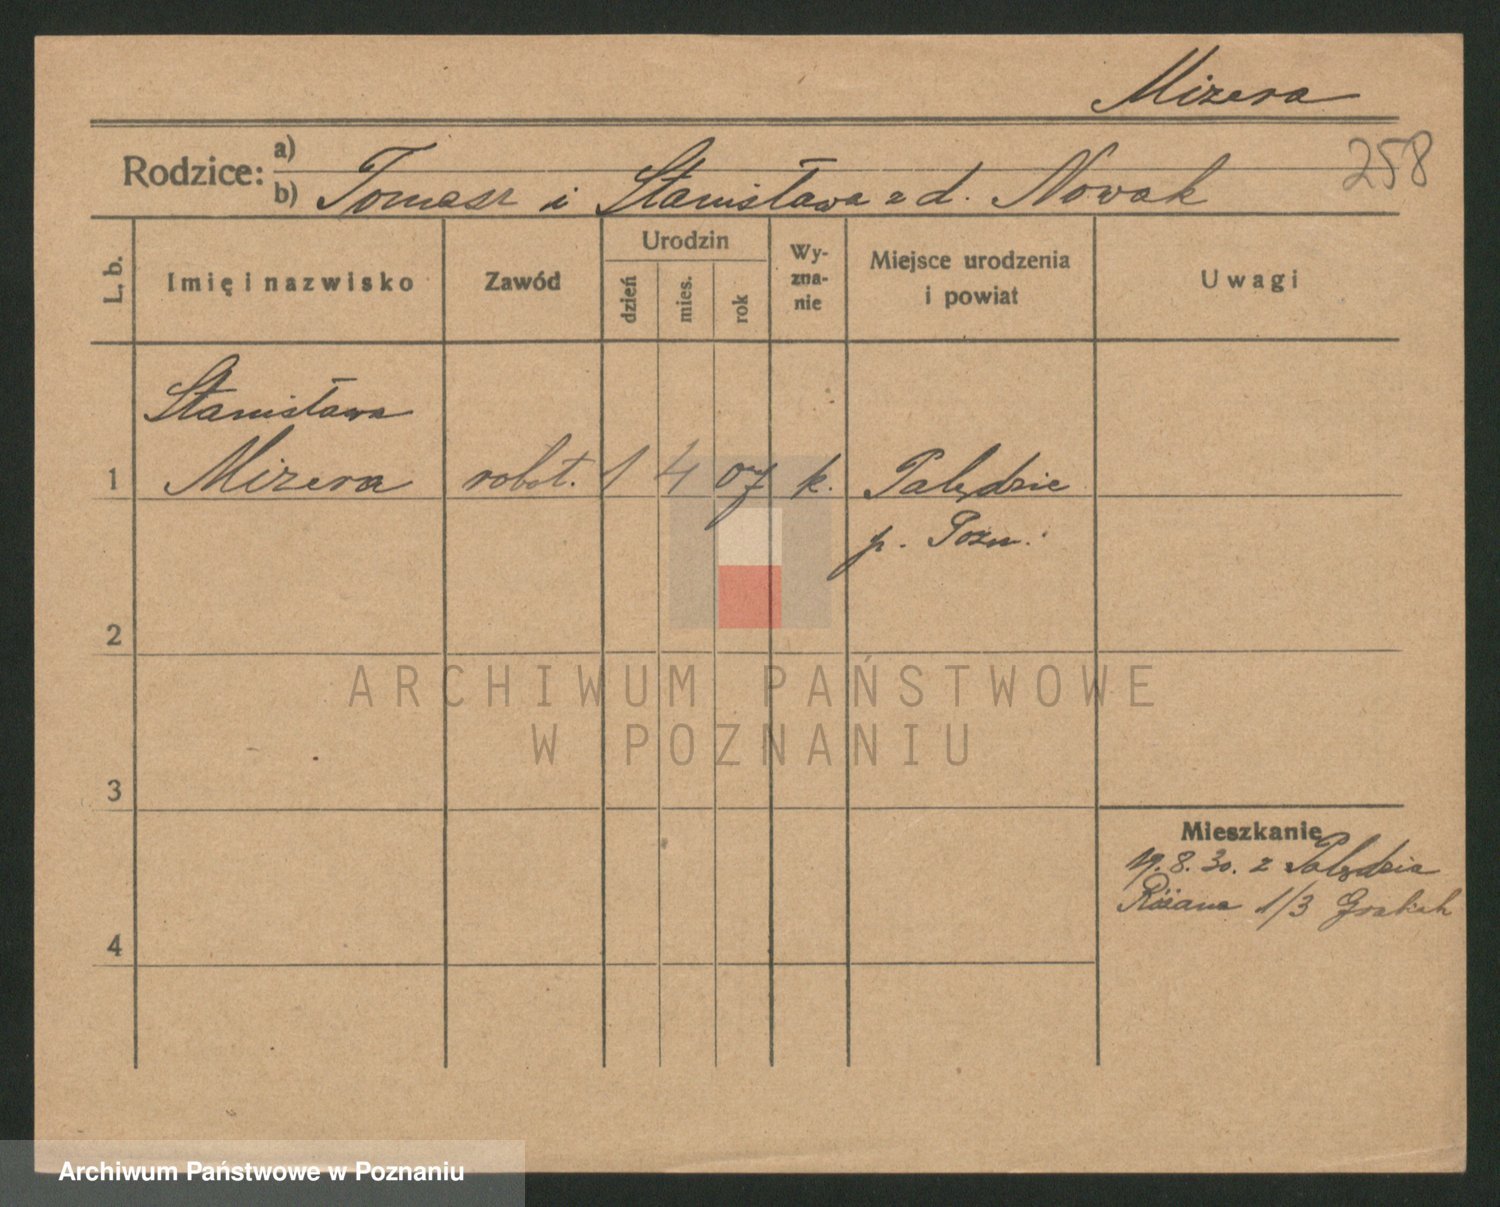 Mizera
258
Rodzice:
a)
b) Tomasz i Stanisława z d. Nowak
L. b.
Imię i nazwisko
Zawód
Urodzin
dzień
mies.
rok
Wy-
zna-
nie
Miejsce urodzenia
i powiat
Uwagi
Stanisława
1 Mizera robot. 1 4 07 k. Palędzie
p. Pozn.
2
ARCHIWUM PAŃSTWOWE
W POZNANIU
3
Mieszkanie
19.8.30. z Palędzia
Różana 1/3
4
Archiwum Państwowe w Poznaniu